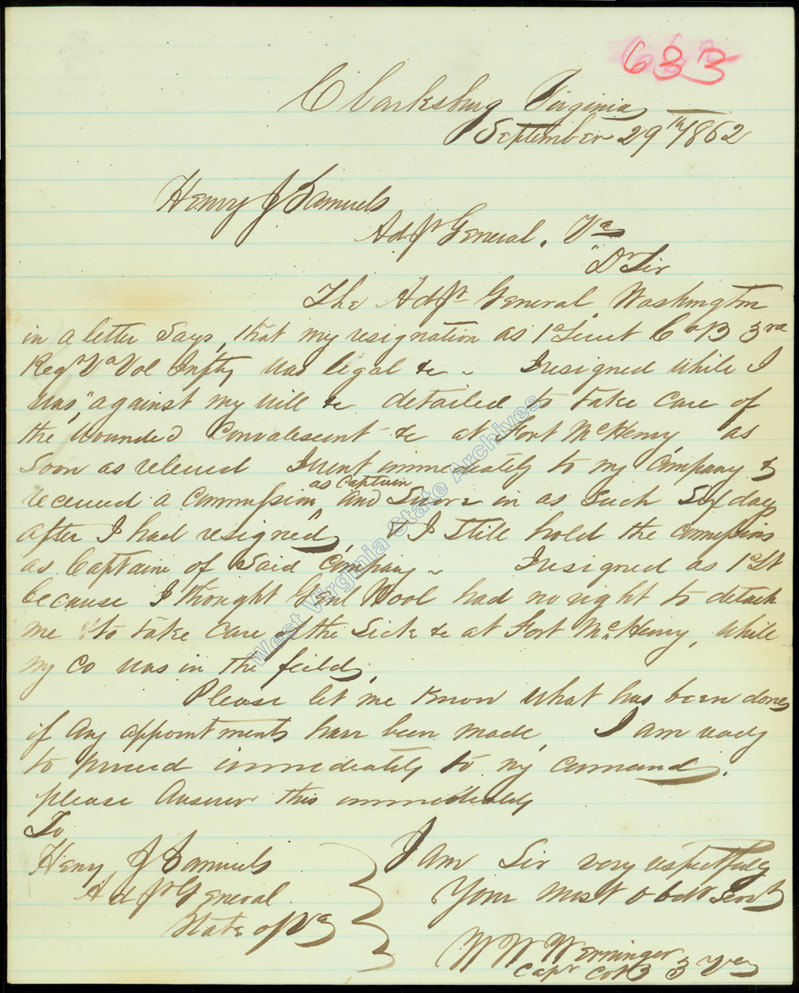 633
Clarksburg Virginia
September 29th 1862
Henry J Samuels
Adjt General. Va
Dr Sir
The Adjt General, Washington
in a letter says, that my resignation as 1st Lieut Co B 3rd
Regt Va Vol Infty was legal &c - I resigned while I
was, against my will &c detailed to take care of
the wounded Convalescent &c at Fort McHenry as
soon as relieved I went immediately to my Company &
received a commission as Captain and Sworn in as such Six days
after I had resigned, & I still hold the commission
as Captain of said Company - I resigned as 1st Lt
because I thought Genl Wool had no right to detach
me to take care of the Sick &c at Fort McHenry, while
my Co was in the field,
Please let me know what has been done,
if any appointments have been made, I am ready
to proceed immediately to my command.
please Answer this immediately
To,
Henry J Samuels
Adjt General
State of Va
I Am Sir very respectfully
Your most Obdt Servt
W W Werninger
Capt Co B 3 Va
West Virginia State Archives